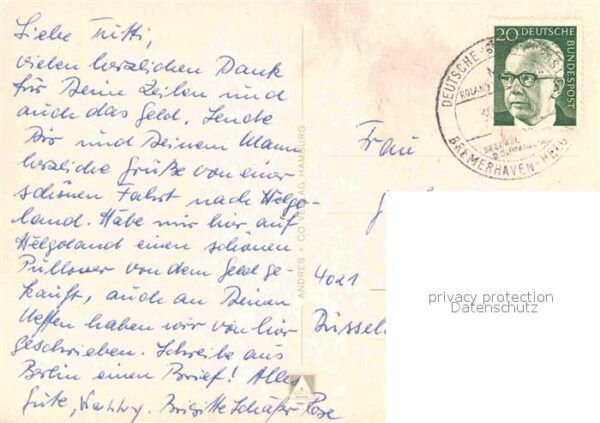 Liebe Tutti,
vielen herzlichen Dank
für Deine Zeilen und
auch das Geld. Sende
Dir und Deinem Mann
herzliche Grüße von einer
schönen Fahrt nach Helgo-
land. Habe mir hier auf
Helgoland einen schönen
Pullover von dem Geld ge-
kauft, auch an Deinen
Neffen haben wir von hier
geschrieben. Schreibe aus
Berlin einen Brief! Alles
Gute, Brigitte Schäfer-Rose
ANDRES + CO VERLAG HAMBURG
20 DEUTSCHE
BUNDESPOST
DEUTSCHE
ROLAND
BREMERHAVEN-HELG
Frau
4021
Düssel
privacy protection
Datenschutz